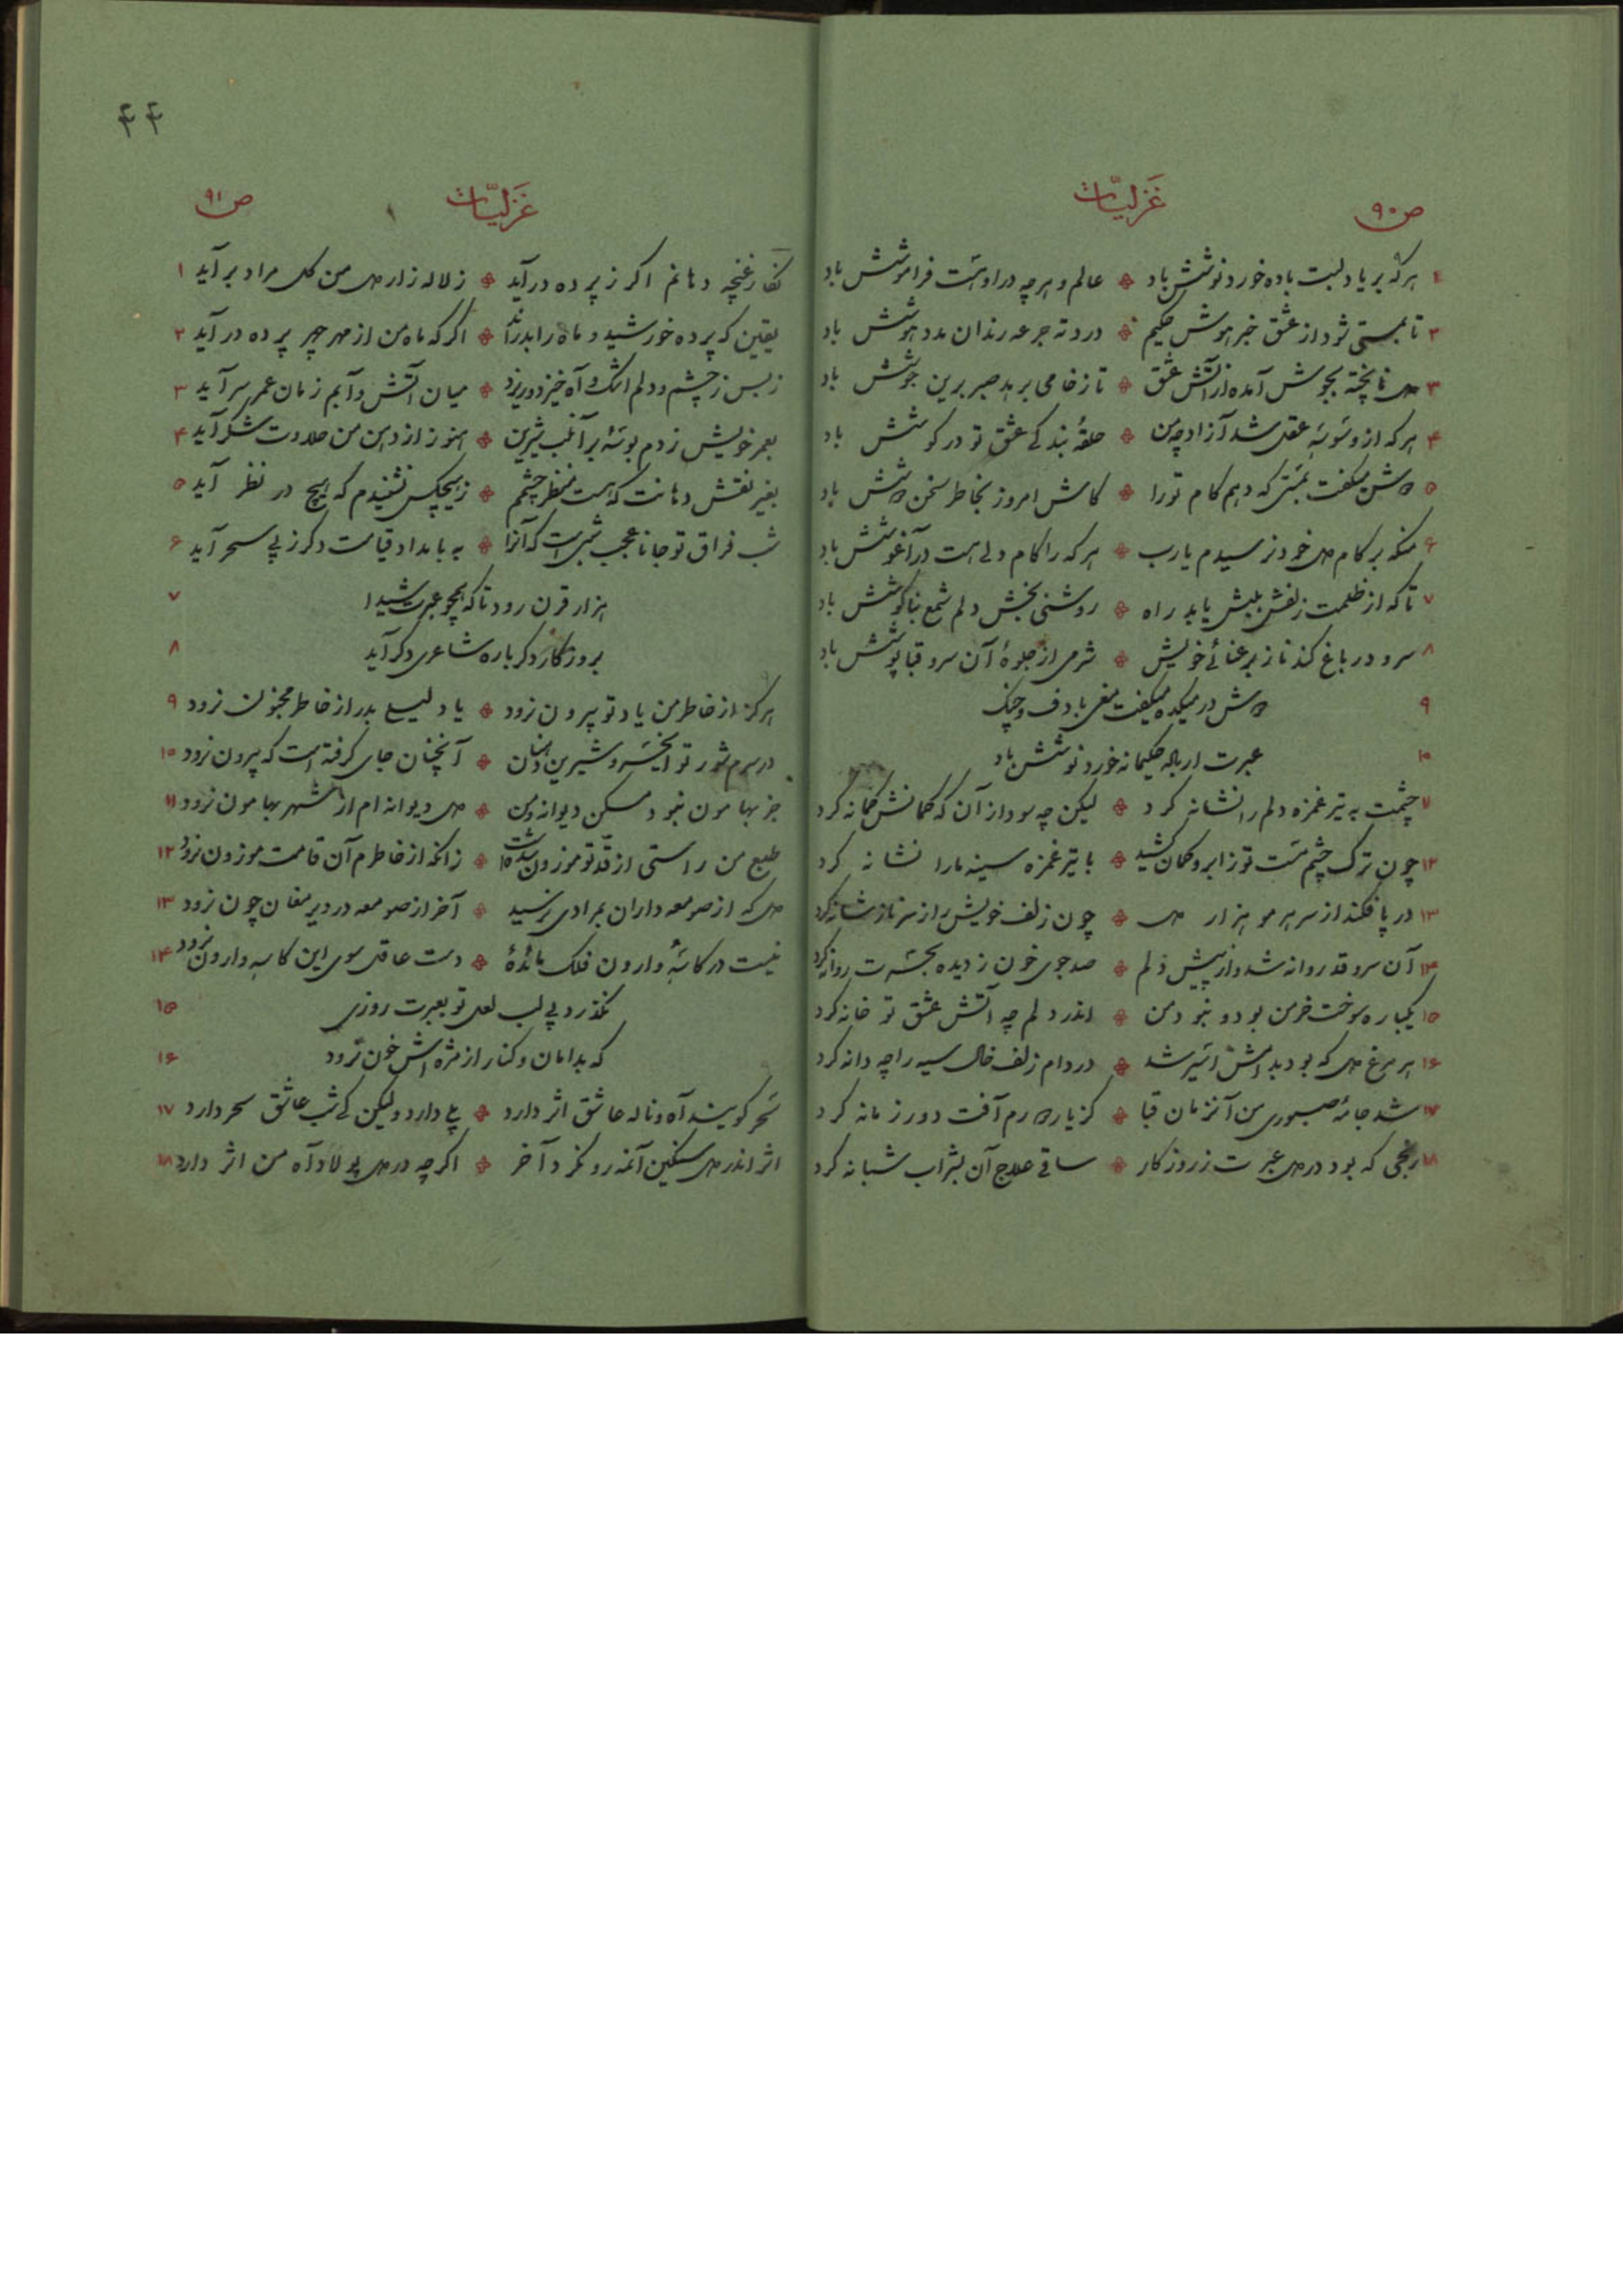 ص ۹۰ غزلیّات
۱ هرکه بر یاد لبت باده خورد نوشش باد ❖ عالم و هرچه در او هست فراموشش باد
۲ تا بمستی شود از عشق خبر هوش حکیم ❖ درد ته جرعه رندان مدد هوشش باد
۳ دل ناپخته بجوش آمده از آتش عشق ❖ تا ز خامی برهد صبر برین جوشش باد
۴ هرکه از وسوسهٔ عقل شد آزاد چو من ❖ حلقهٔ بندگی عشق تو در گوشش باد
۵ دوش میگفت بمستی که دهم کام تو را ❖ کاش امروز بخاطر سخن دوشش باد
۶ منکه بر کام دل خود نرسیدم یارب ❖ هرکه را کام دلی هست در آغوشش باد
۷ تا که از ظلمت زلفش بلبش یابد راه ❖ روشنی بخش دلم شمع بناگوشش باد
۸ سرو در باغ کند ناز برعنائی خویش ❖ شرمی از جلوهٔ آن سرو قباپوشش باد
۹ دوش در میکده میگفت مغی با دف و چنگ
۱۰ عبرت ار باده حکیمانه خورد نوشش باد
۱۱ چشمت به تیر غمزه دلم را نشانه کرد ❖ لیکن چه سود از آن که کمانش کمانه کرد
۱۲ چون ترک چشم مست تو ز ابرو کمان کشید ❖ با تیر غمزه سینه ما را نشانه کرد
۱۳ در پا فکند از سر هر مو هزار دل ❖ چون زلف خویش را ز سر ناز شانه کرد
۱۴ آن سرو قد روانه شد و از پیش دلم ❖ صد جوی خون ز دیده بحسرت روانه کرد
۱۵ یکباره سوخت خرمن بود و نبود من ❖ اندر دلم چه آتش عشق تو خانه کرد
۱۶ هر مرغ دل که بود بدامش اسیر شد ❖ در دام زلف خال سیه را چه دانه کرد
۱۷ شد جامهٔ صبوری من آنزمان قبا ❖ کز یار دورم آفت دور زمانه کرد
۱۸ رنجی که بود در دل عبرت ز روزگار ❖ ساقی علاج آن بشراب شبانه کرد
۴۴
غزلیّات ص ۹۱
نگار غنچه دهانم اگر ز پرده درآید ❖ ز لاله زار دل من گل مراد برآید ۱
یقین که پرده خورشید و ماه را بدراند ❖ اگر که ماه من از مهر چهر پرده درآید ۲
ز بس ز چشم و دلم اشک و آه خیزد و ریزد ❖ میان آتش و آبم زمان عمر سرآید ۳
بعمر خویش زدم بوسهٔ بر آن لب شیرین ❖ هنوز از دهن من حلاوت شکر آید ۴
بغیر نقش دهانت که هست منظر چشمم ❖ ز هیچکس نشنیدم که هیچ در نظر آید ۵
شب فراق تو جانا عجب شبی است که آنرا ❖ به بامداد قیامت دگر ز پی سحر آید ۶
هزار قرن رود تا که همچو عبرت شیدا ۷
بروزگار دگرباره شاعری دگر آید ۸
هرگز از خاطر من یاد تو بیرون نرود ❖ یاد لیلی بدر از خاطر مجنون نرود ۹
در سرم شور تو ای خسرو شیرین دهنان ❖ آنچنان جای گرفته است که بیرون نرود ۱۰
جز بهامون نبود مسکن دیوانه و من ❖ دل دیوانه ام از شهر بهامون نرود ۱۱
طبع من راستی از قد تو موزون شده است ❖ زانکه از خاطرم آن قامت موزون نرود ۱۲
دل که از صومعه داران بمرادی نرسید ❖ آخر از صومعه در دیر مغان چون نرود ۱۳
نیست در کاسهٔ وارون فلک مائدهٔ ❖ دست عاقل سوی این کاسه وارون نرود ۱۴
نگذرد بی لب لعل تو بعبرت روزی ۱۵
که بدامان و کنار از مژه اش خون نرود ۱۶
سحر گویند آه و ناله عاشق اثر دارد ❖ بلی دارد ولیکن کی شب عاشق سحر دارد ۱۷
اثر اندر دل سنگین آنمه رو نکرد آخر ❖ اگرچه در دل پولاد آه من اثر دارد ۱۸